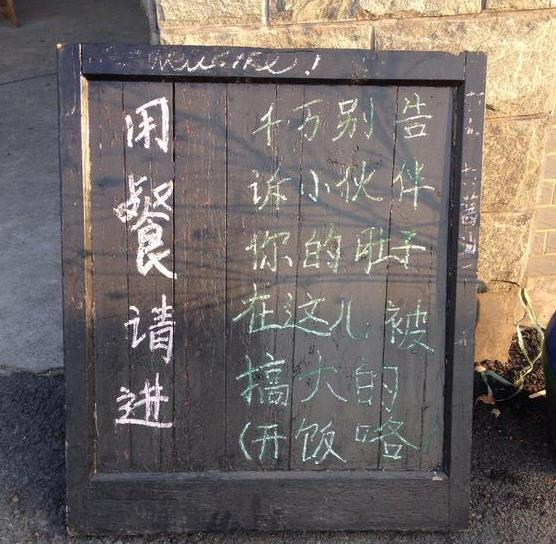 用餐请进
千万别告
诉小伙伴
你的肚子
在这儿被
搞大的
(开饭咯)